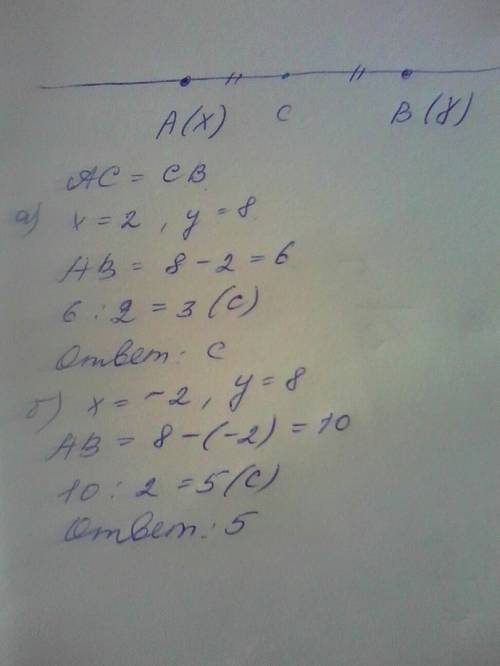 A(x) C B(y)
AC = CB
а) x = 2, y = 8
AB = 8 - 2 = 6
6 : 2 = 3 (C)
Ответ: C
б) x = -2, y = 8
AB = 8 - (-2) = 10
10 : 2 = 5 (C)
Ответ: 5